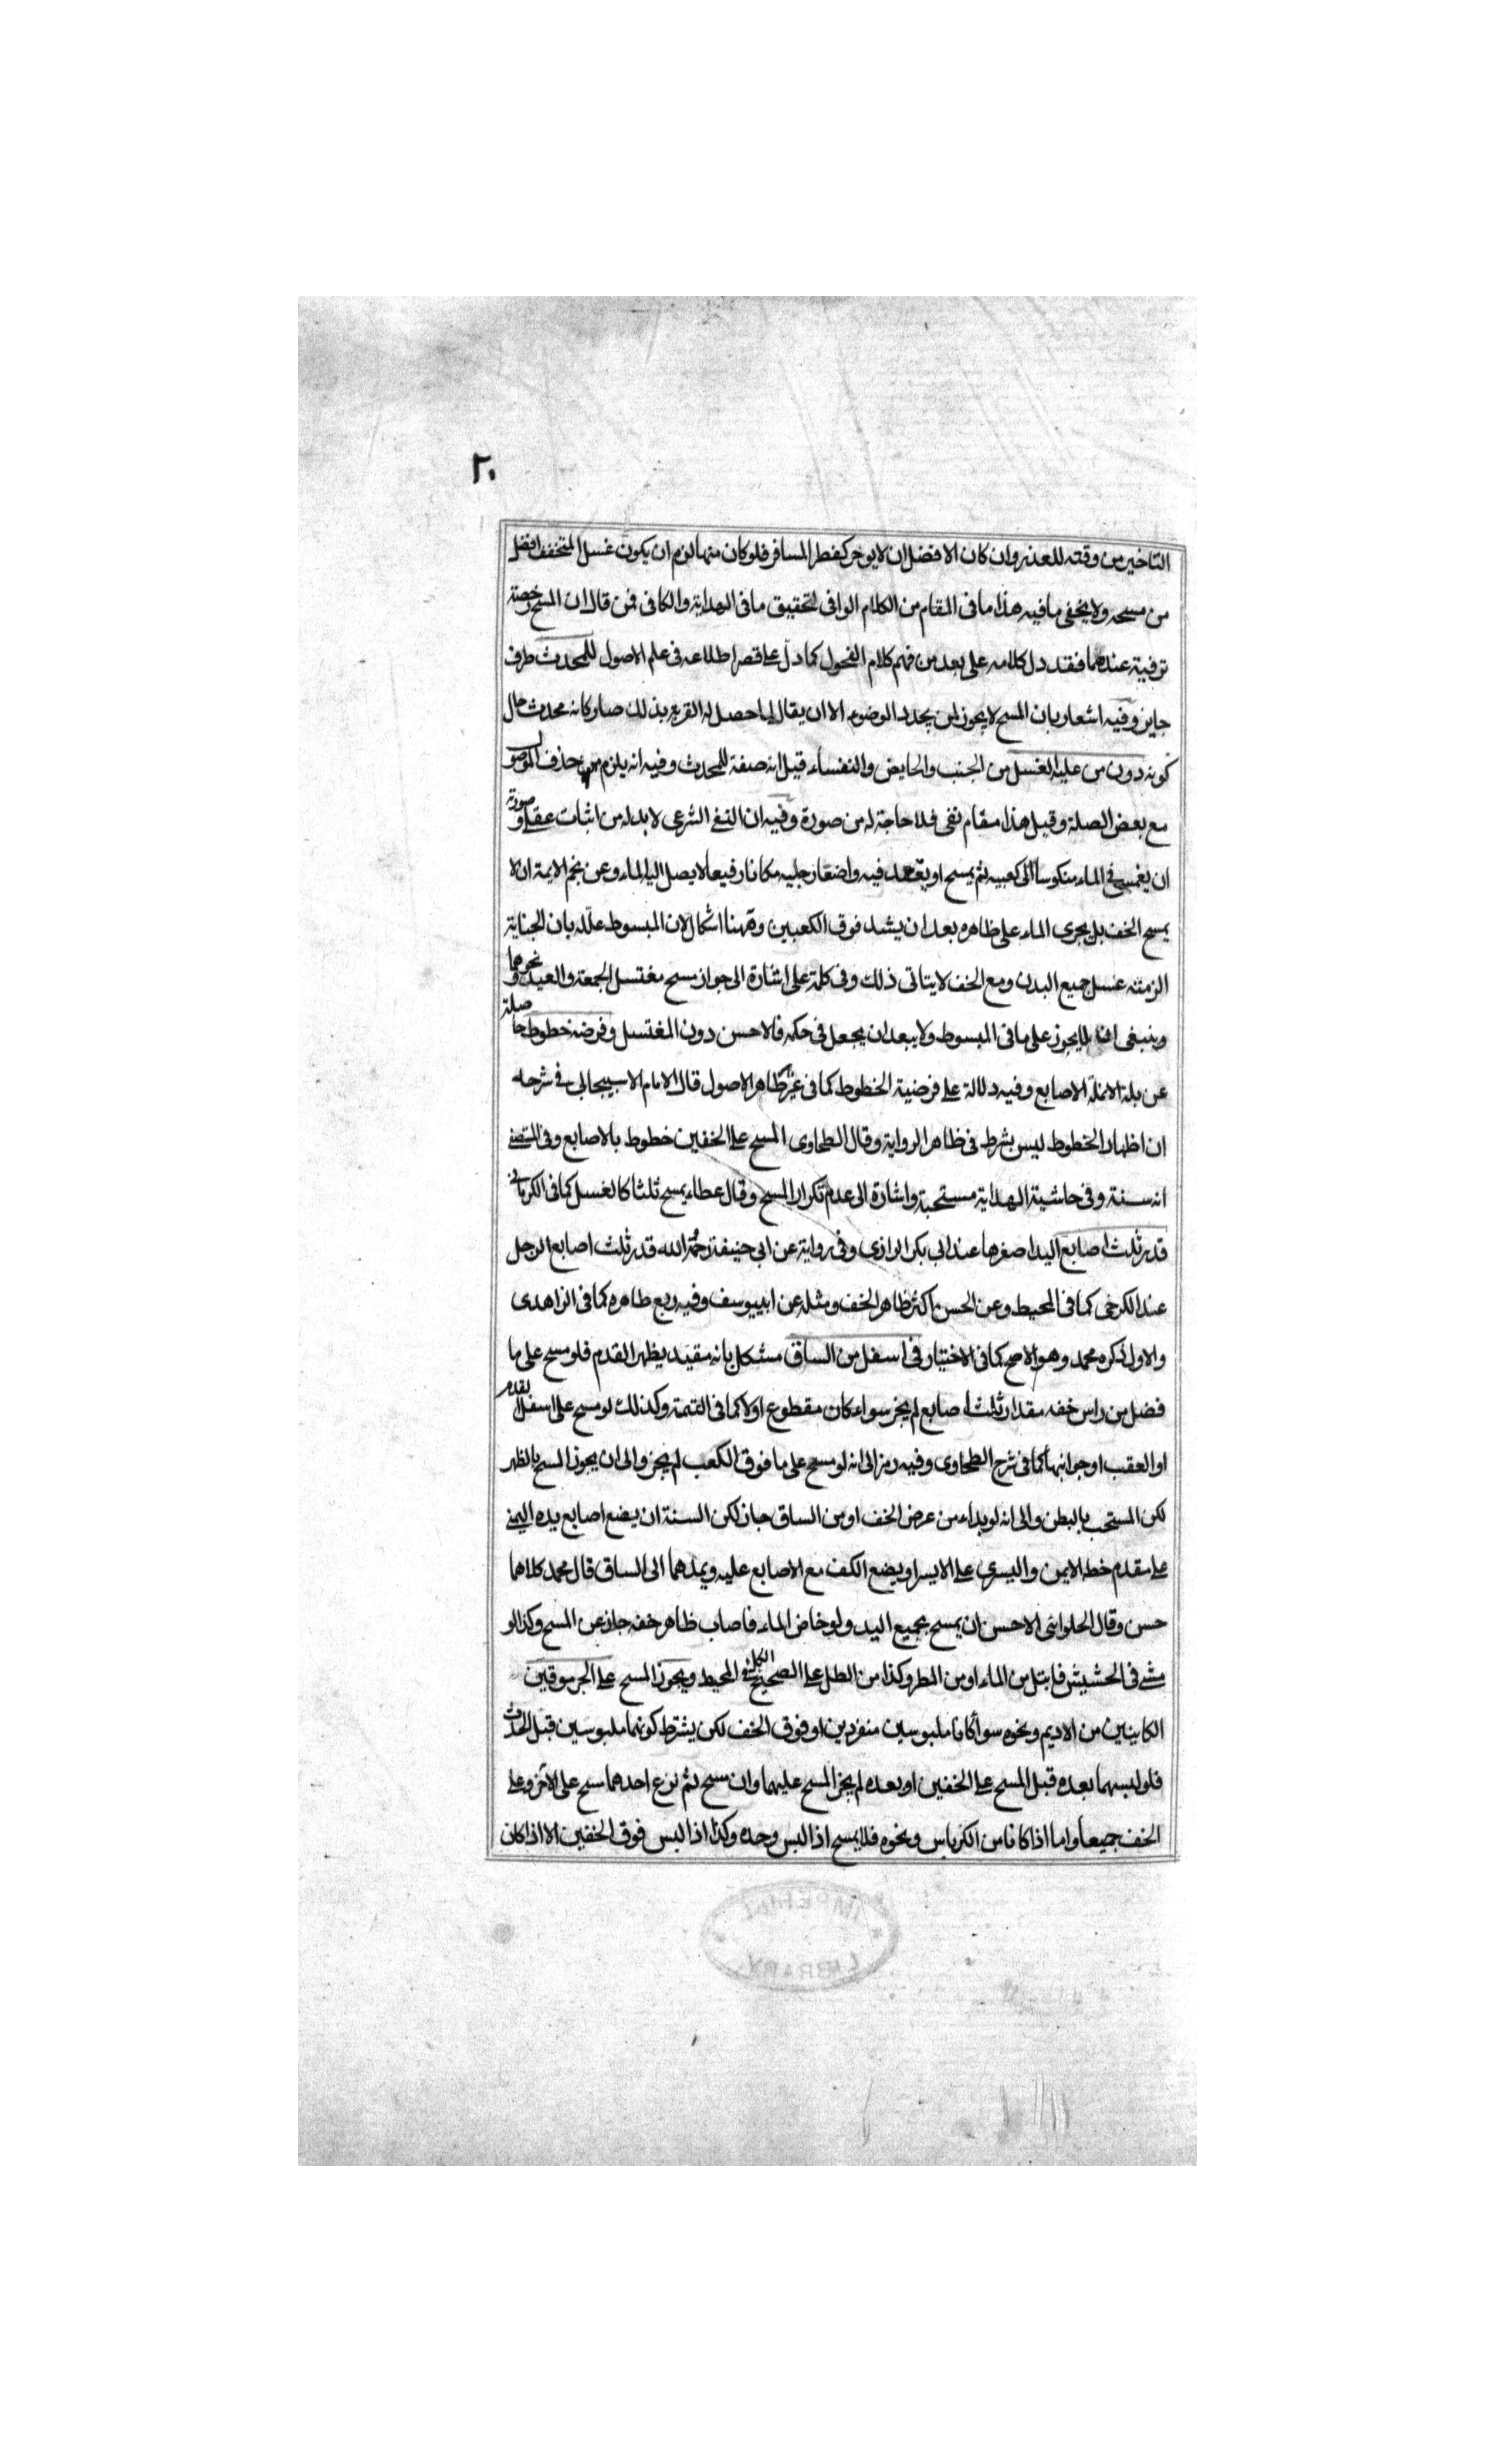 ٢٠
التاخير من وقته للعذر وان كان الافضل ان لا يوخر كفطر المسافر فلو كان منها لزم ان يكون غسل المتخفف افضل
من مسحه ولا يخفى ما فيه هذا ما فى المقام من الكلام الوافى لتحقيق ما فى الهداية والكافى فمن قال ان المسح رخصة
ترفية عندهما فقد دل كلامه على بعد من فهم كلام الفحول كما دل على قصر اطلاعه فى علم الاصول للمحدث ظرف
جايز وفيه اشعار بان المسح لا يجوز لمن يجدد الوضوء الا ان يقال لما حصل له القربه بذلك صار كانه محدث حال
كونه دون من عليه الغسل من الجنب والحايض والنفساء قيل انه صفة للمحدث وفيه انه يلزم حذف الموصول
مع بعض الصلة وقيل هذا مقام نفى فلا حاجة له من صورة وفيه ان النفى الشرعى لا بد له من اثبات عقلى وصورته
ان يغمس فى الماء منكوسا الى كعبيه ثم يمسح او يقعد فيه واضعا رجليه مكانا رفيعا لا يصل اليه الماء وعن نجم الايمة ان لا
يمسح الخف بل يجرى الماء على ظاهره بعد ان يشد فوق الكعبين وههنا اشكال لان المبسوط علله بان الجنابة
الزمته غسل جميع البدن ومع الخف لا يتاتى ذلك وفى كلمة على اشارة الى جواز مسح مغتسل الجمعة والعيد ونحوهما
وينبغى ان لا يجوز على ما فى المبسوط ولا يبعد ان يجعل فى حكمه فالاحسن دون المغتسل وفرضه خطوط حاصلة
عن بلة الانملة الاصابع وفيه دلالة على فرضية الخطوط كما فى غير ظاهر الاصول قال الامام الاسبيجابى فى شرحه
ان اظهار الخطوط ليس بشرط فى ظاهر الرواية وقال الطحاوى المسح على الخفين خطوط بالاصابع وفى المستصفى
انه سنة وفى حاشية الهداية مستحبة واشارة الى عدم تكرار المسح وقال عطاء يمسح ثلثا كالغسل كما فى الكرمانى
قدر ثلث اصابع اليد اصغرها عند ابى بكر الرازى وفى رواية عن ابى حنيفة رحمة الله قدر ثلث اصابع الرجل
عند الكرخى كما فى المحيط وعن الحسن اكثر ظاهر الخف ومثله عن ابييوسف وفيه ربع ظاهره كما فى الزاهدى
والاول ذكره محمد وهو الاصح كما فى الاختيار فى اسفل من الساق مشكل بانه مقيد بظهر القدم فلو مسح على ما
فضل من راس خفه مقدار ثلث اصابع لم يجز سواء كان مقطوع اولا كما فى التتمة وكذلك لو مسح على اسفل القدم
او العقب او جوانبها كما فى شرح الطحاوى وفيه رمز الى انه لو مسح على ما فوق الكعب لم يجز والى ان يجوز المسح بالظهر
لكن المستحب بالبطن والى انه لو بداء من عرض الخف او من الساق جاز لكن السنة ان يضع اصابع يده اليمنى
على مقدم خفه الايمن واليسرى على الايسر او يضع الكف مع الاصابع عليه ويمدهما الى الساق قال محمد كلاهما
حسن وقال الحلوانى الاحسن ان يمسح بجميع اليد ولو خاض الماء فاصاب ظاهر خفه جاز عن المسح وكذا لو
مشى فى الحشيش فابتل من الماء او من المطر وكذا من الطل على الصحيح الكل فى المحيط ويجوز المسح على الجرموقين
الكاينين من الاديم ونحوه سوأ كانا ملبوسين منفردين او فوق الخف لكن يشترط كونهما ملبوسين قبل الحدث
فلو لبسهما بعده قبل المسح على الخفين او بعده لم يجز المسح عليهما وان مسح ثم نزع احدهما مسح على الآخر وعلى
الخف جميعا واما اذا كانا من الكرباس ونحوه فلا يمسح اذا لبس وحده وكذا اذا لبس فوق الخفين الا اذا كان
IMPERIAL
LIBRARY